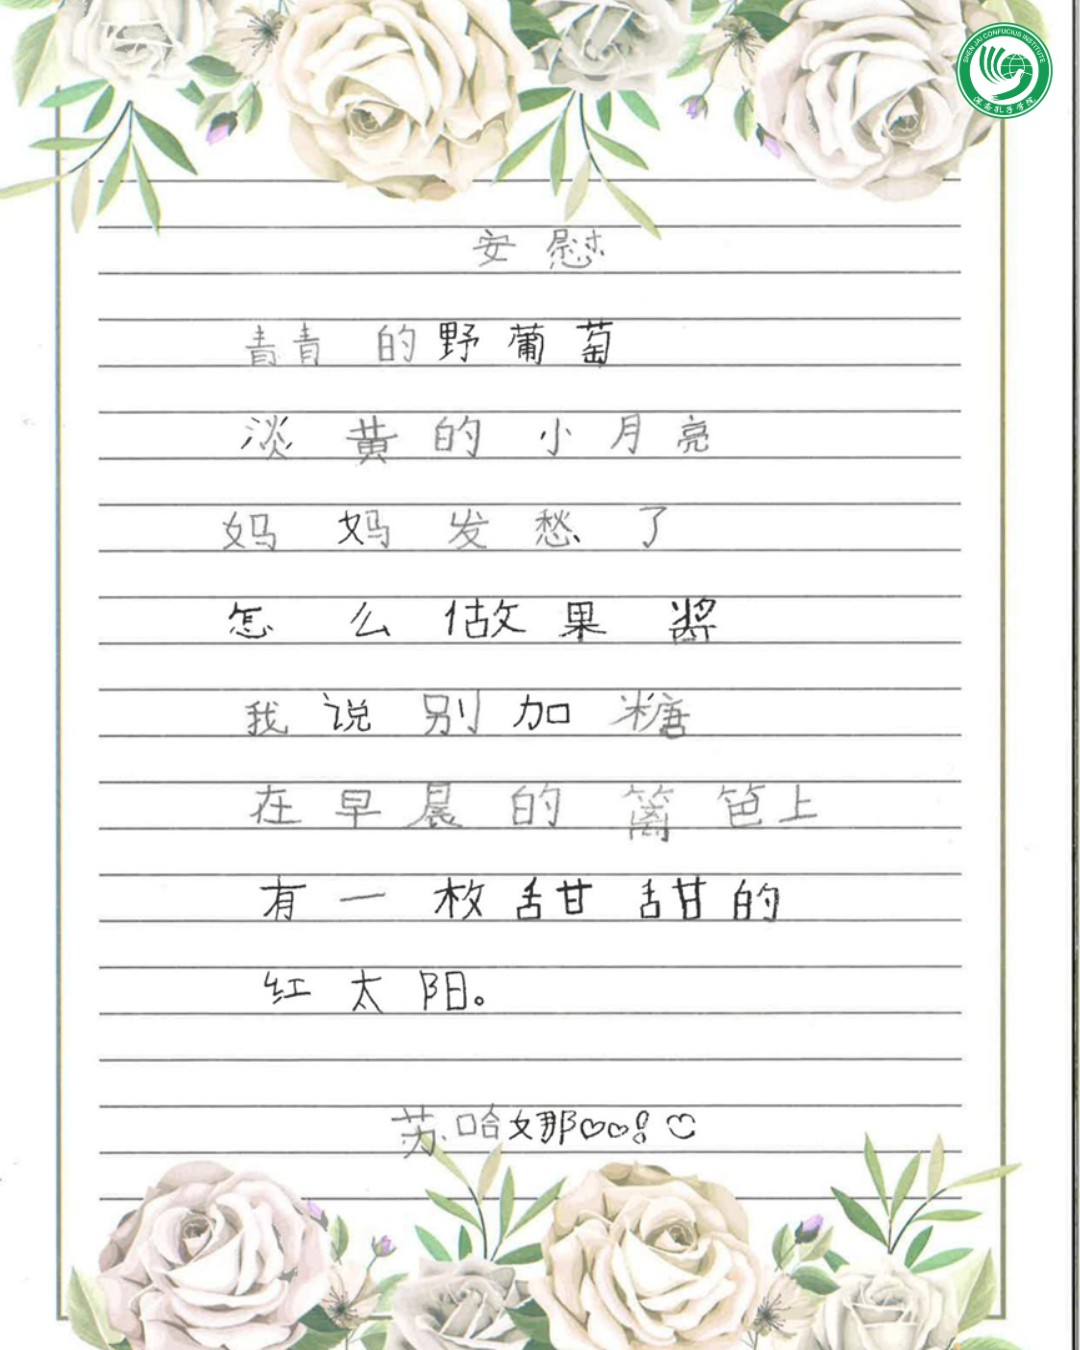 SHEN JAI CONFUCIUS INSTITUTE
深斋孔子学院
安慰
青青的野葡萄
淡黄的小月亮
妈妈发愁了
怎么做果酱
我说别加糖
在早晨的篱笆上
有一枚甜甜的
红太阳。
苏哈娜♡♡!